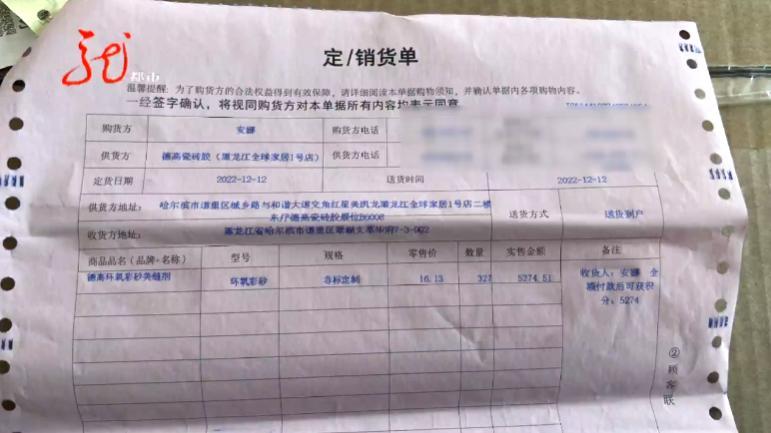 龙
都市
定/销货单
温馨提醒：为了购货方的合法权益得到有效保障，请详细阅读本单据购物须知，并确认单据内各项购物内容。
一经签字确认，将视同购货方对本单据所有内容均表示同意。
购货方 安娜 购货方电话
供货方 德高瓷砖胶（黑龙江全球家居1号店） 供货方电话
定货日期 2022-12-12 送货时间 2022-12-12
供货方地址： 哈尔滨市道里区城乡路与和谐大道交角红星美凯龙黑龙江全球家居1号店二楼
东厅德高瓷砖胶展位B6008 送货方式 送货到户
收货方地址： 黑龙江省哈尔滨市道里区 7-3-902
商品品名（品牌+名称） 型号 规格 零售价 数量 实售金额 备注
德高环氧彩砂美缝剂 环氧彩砂 非标定制 16.13 327 5274.51 收货人：安娜 全
额付款后可获积
分：5274
②顾客联